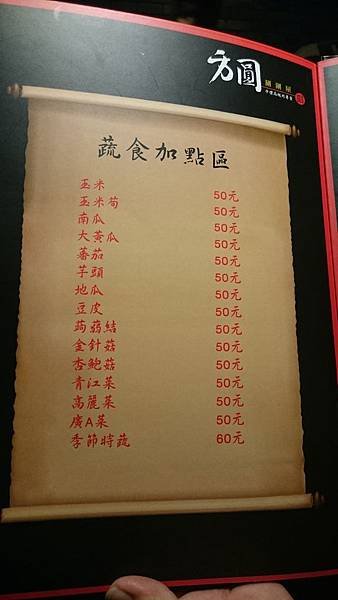 方圓
涮涮屋
蔬食加點區
玉米 50元
玉米筍 50元
南瓜 50元
大黃瓜 50元
蕃茄 50元
芋頭 50元
地瓜 50元
豆皮 50元
蒟蒻結 50元
金針菇 50元
杏鮑菇 50元
青江菜 50元
高麗菜 50元
廣A菜 50元
季節時蔬 60元